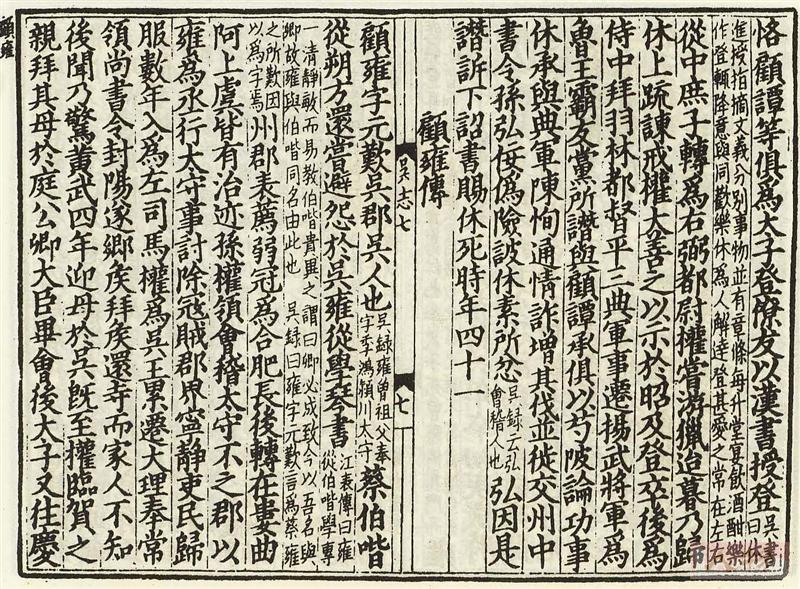 恪顧譚等俱為太子登僚友以漢書授登吳書曰休
進授指摘文義分別事物並有章條每升堂宴飲酒酣樂
作登輒降意與同歡樂休為人解達登甚愛之常在左右
從中庶子轉為右弼都尉權嘗游獵迨暮乃歸
休上疏諫戒權大善之以示於昭及登卒後為
侍中拜羽林都督平三典軍事遷揚武將軍為
魯王霸友黨所譖與顧譚承俱以芍陂論功事
休承與典軍陳恂通情詐增其伐並徙交州中
書令孫弘佞偽險詖休素所忿吳錄云弘會稽人也弘因是
譖訴下詔書賜休死時年四十一
顧雍傳
吳志七
七
顧雍字元歎吳郡吳人也吳錄雍曾祖父奉字季鴻潁川太守蔡伯喈
從朔方還嘗避怨於吳雍從學琴書江表傳曰雍從伯喈學專
一清靜敏而易教伯喈貴異之謂曰卿必成致今以吾名與
卿故雍與伯喈同名由此也 吳錄曰雍字元歎言為蔡雍
之所歎因以為字焉州郡表薦弱冠為合肥長後轉在婁曲
阿上虞皆有治迹孫權領會稽太守不之郡以
雍為丞行太守事討除寇賊郡界寧靜吏民歸
服數年入為左司馬權為吳王累遷大理奉常
領尚書令封陽遂鄉侯拜侯還寺而家人不知
後聞乃驚黃武四年迎母於吳既至權臨賀之
親拜其母於庭公卿大臣畢會後太子又往慶
顧雍